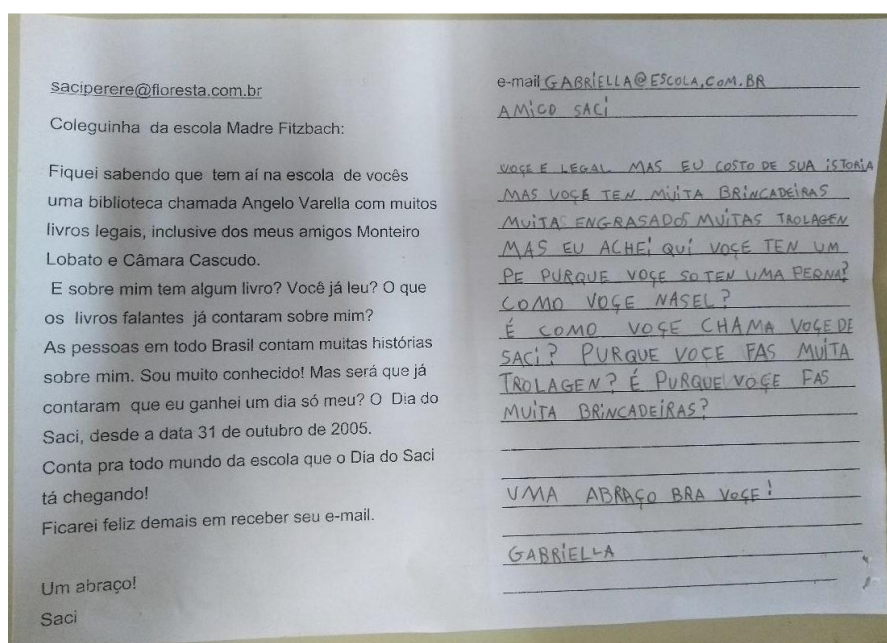 saciperere@floresta.com.br
Coleguinha da escola Madre Fitzbach:
Fiquei sabendo que tem aí na escola de vocês
uma biblioteca chamada Angelo Varella com muitos
livros legais, inclusive dos meus amigos Monteiro
Lobato e Câmara Cascudo.
E sobre mim tem algum livro? Você já leu? O que
os livros falantes já contaram sobre mim?
As pessoas em todo Brasil contam muitas histórias
sobre mim. Sou muito conhecido! Mas será que já
contaram que eu ganhei um dia só meu? O Dia do
Saci, desde a data 31 de outubro de 2005.
Conta pra todo mundo da escola que o Dia do Saci
tá chegando!
Ficarei feliz demais em receber seu e-mail.
Um abraço!
Saci
e-mail GABRIELLA@ESCOLA.COM.BR
AMICO SACI
VOÇE E LEGAL MAS EU COSTO DE SUA ISTORIA
MAS VOÇE TEN MUITA BRINCADEIRAS
MUITAS ENGRASADOS MUITAS TROLAGEN
MAS EU ACHEI QUI VOÇE TEN UM
PE PURQUE VOÇE SO TEN UMA PERNA?
COMO VOÇE NASEL?
É COMO VOÇE CHAMA VOÇE DE
SACI? PURQUE VOCE FAS MUITA
TROLAGEN? É PURQUE VOÇE FAS
MUITA BRINCADEIRAS?
UMA ABRAÇO BRA VOÇE!
GABRIELLA